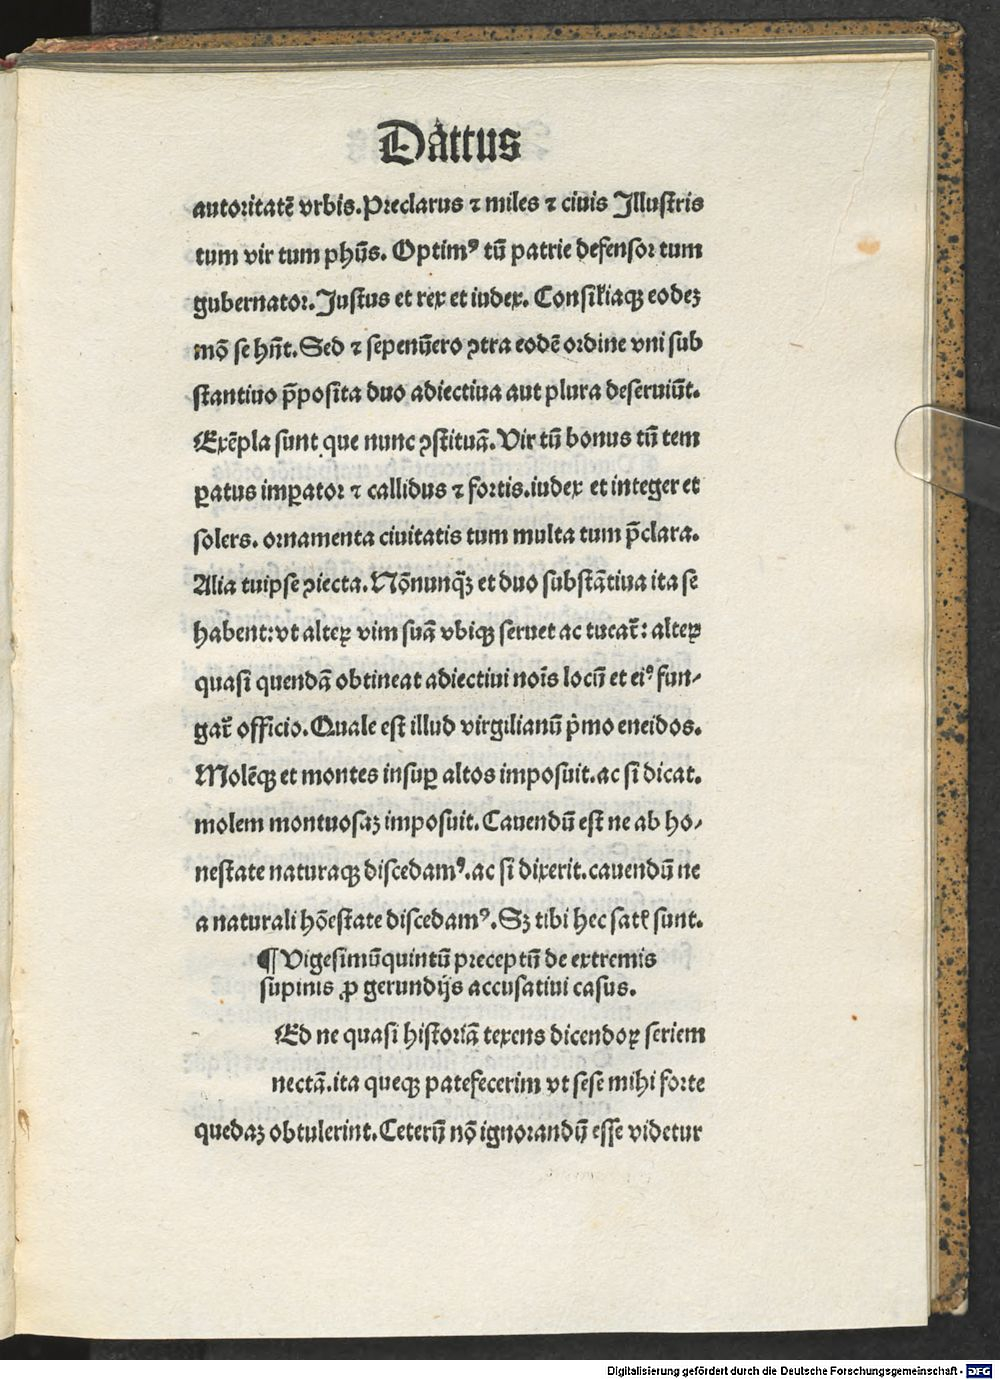 Dattus
autoritatē vrbis. Preclarus ⁊ miles ⁊ ciuis Jllustris
tum vir tum phūs. Optimꝰ tū patrie defensor tum
gubernator. Justus et rex et iudex. Consiliaqꝫ eodeꝫ
mō se hn̄t. Sed ⁊ sepenūero ↄtra eodē ordine vni sub
stantiuo p̄posita duo adiectiua aut plura deseruiūt.
Exēpla sunt que nunc ↄstituā. Vir tū bonus tū tem
ꝑatus imꝑator ⁊ callidus ⁊ fortis. iudex et integer et
solers. ornamenta ciuitatis tum multa tum p̄clara.
Alia tuipse ↄiecta. Nōnunqꝫ̄ et duo substātiua ita se
habent: vt alteꝝ vim suā vbiqꝫ seruet ac tueat̄: alteꝝ
quasi quendā obtineat adiectiui nois̄ locū et eiꝰ fun⸗
gat̄ officio. Quale est illud virgilianū p̄mo eneidos.
Molēqꝫ et montes insuꝑ altos imposuit. ac si dicat.
molem montuosaꝫ imposuit. Cauendū est ne ab ho⸗
nestate naturaqꝫ discedamꝰ. ac si dixerit. cauendū ne
a naturali hōestate discedamꝰ. Sꝫ tibi hec satꝭ sunt.
¶ Vigesimūquintū preceptū de extremis
supinis ꝓ gerundijs accusatiui casus.
Ed ne quasi historiā texens dicendoꝝ seriem
nectā. ita queqꝫ patefecerim vt sese mihi forte
quedaꝫ obtulerint. Ceterū nō ignorandū esse videtur
Digitalisierung gefördert durch die Deutsche Forschungsgemeinschaft - DFG